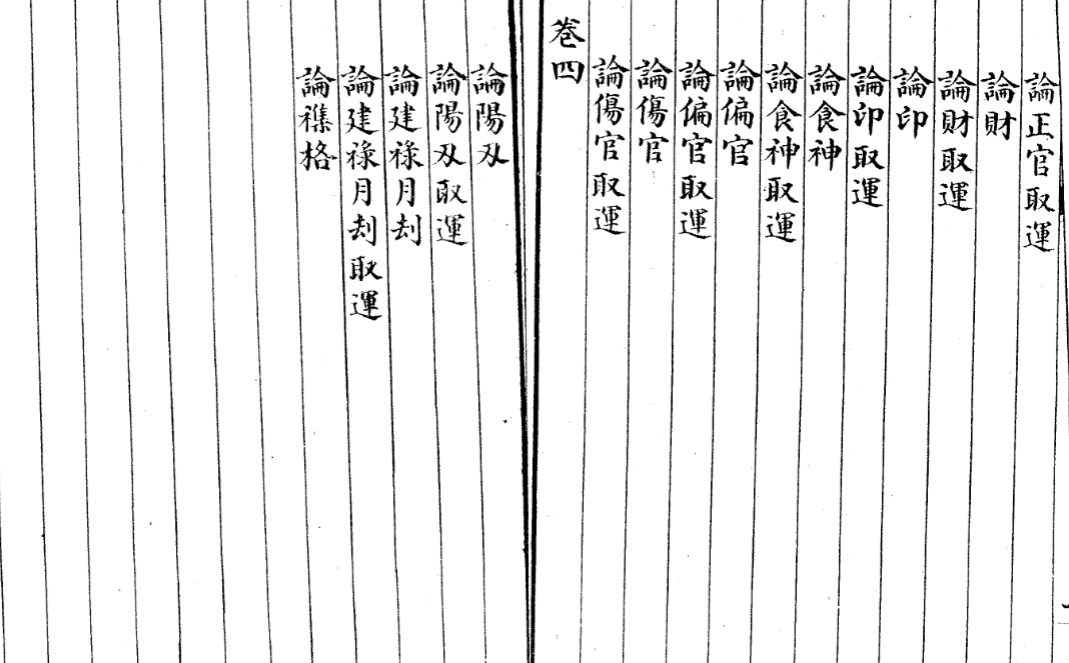 論正官取運
論財
論財取運
論印
論印取運
論食神
論食神取運
論偏官
論偏官取運
論傷官
論傷官取運
卷四
論陽刄
論陽刄取運
論建祿月刦
論建祿月刦取運
論襍格